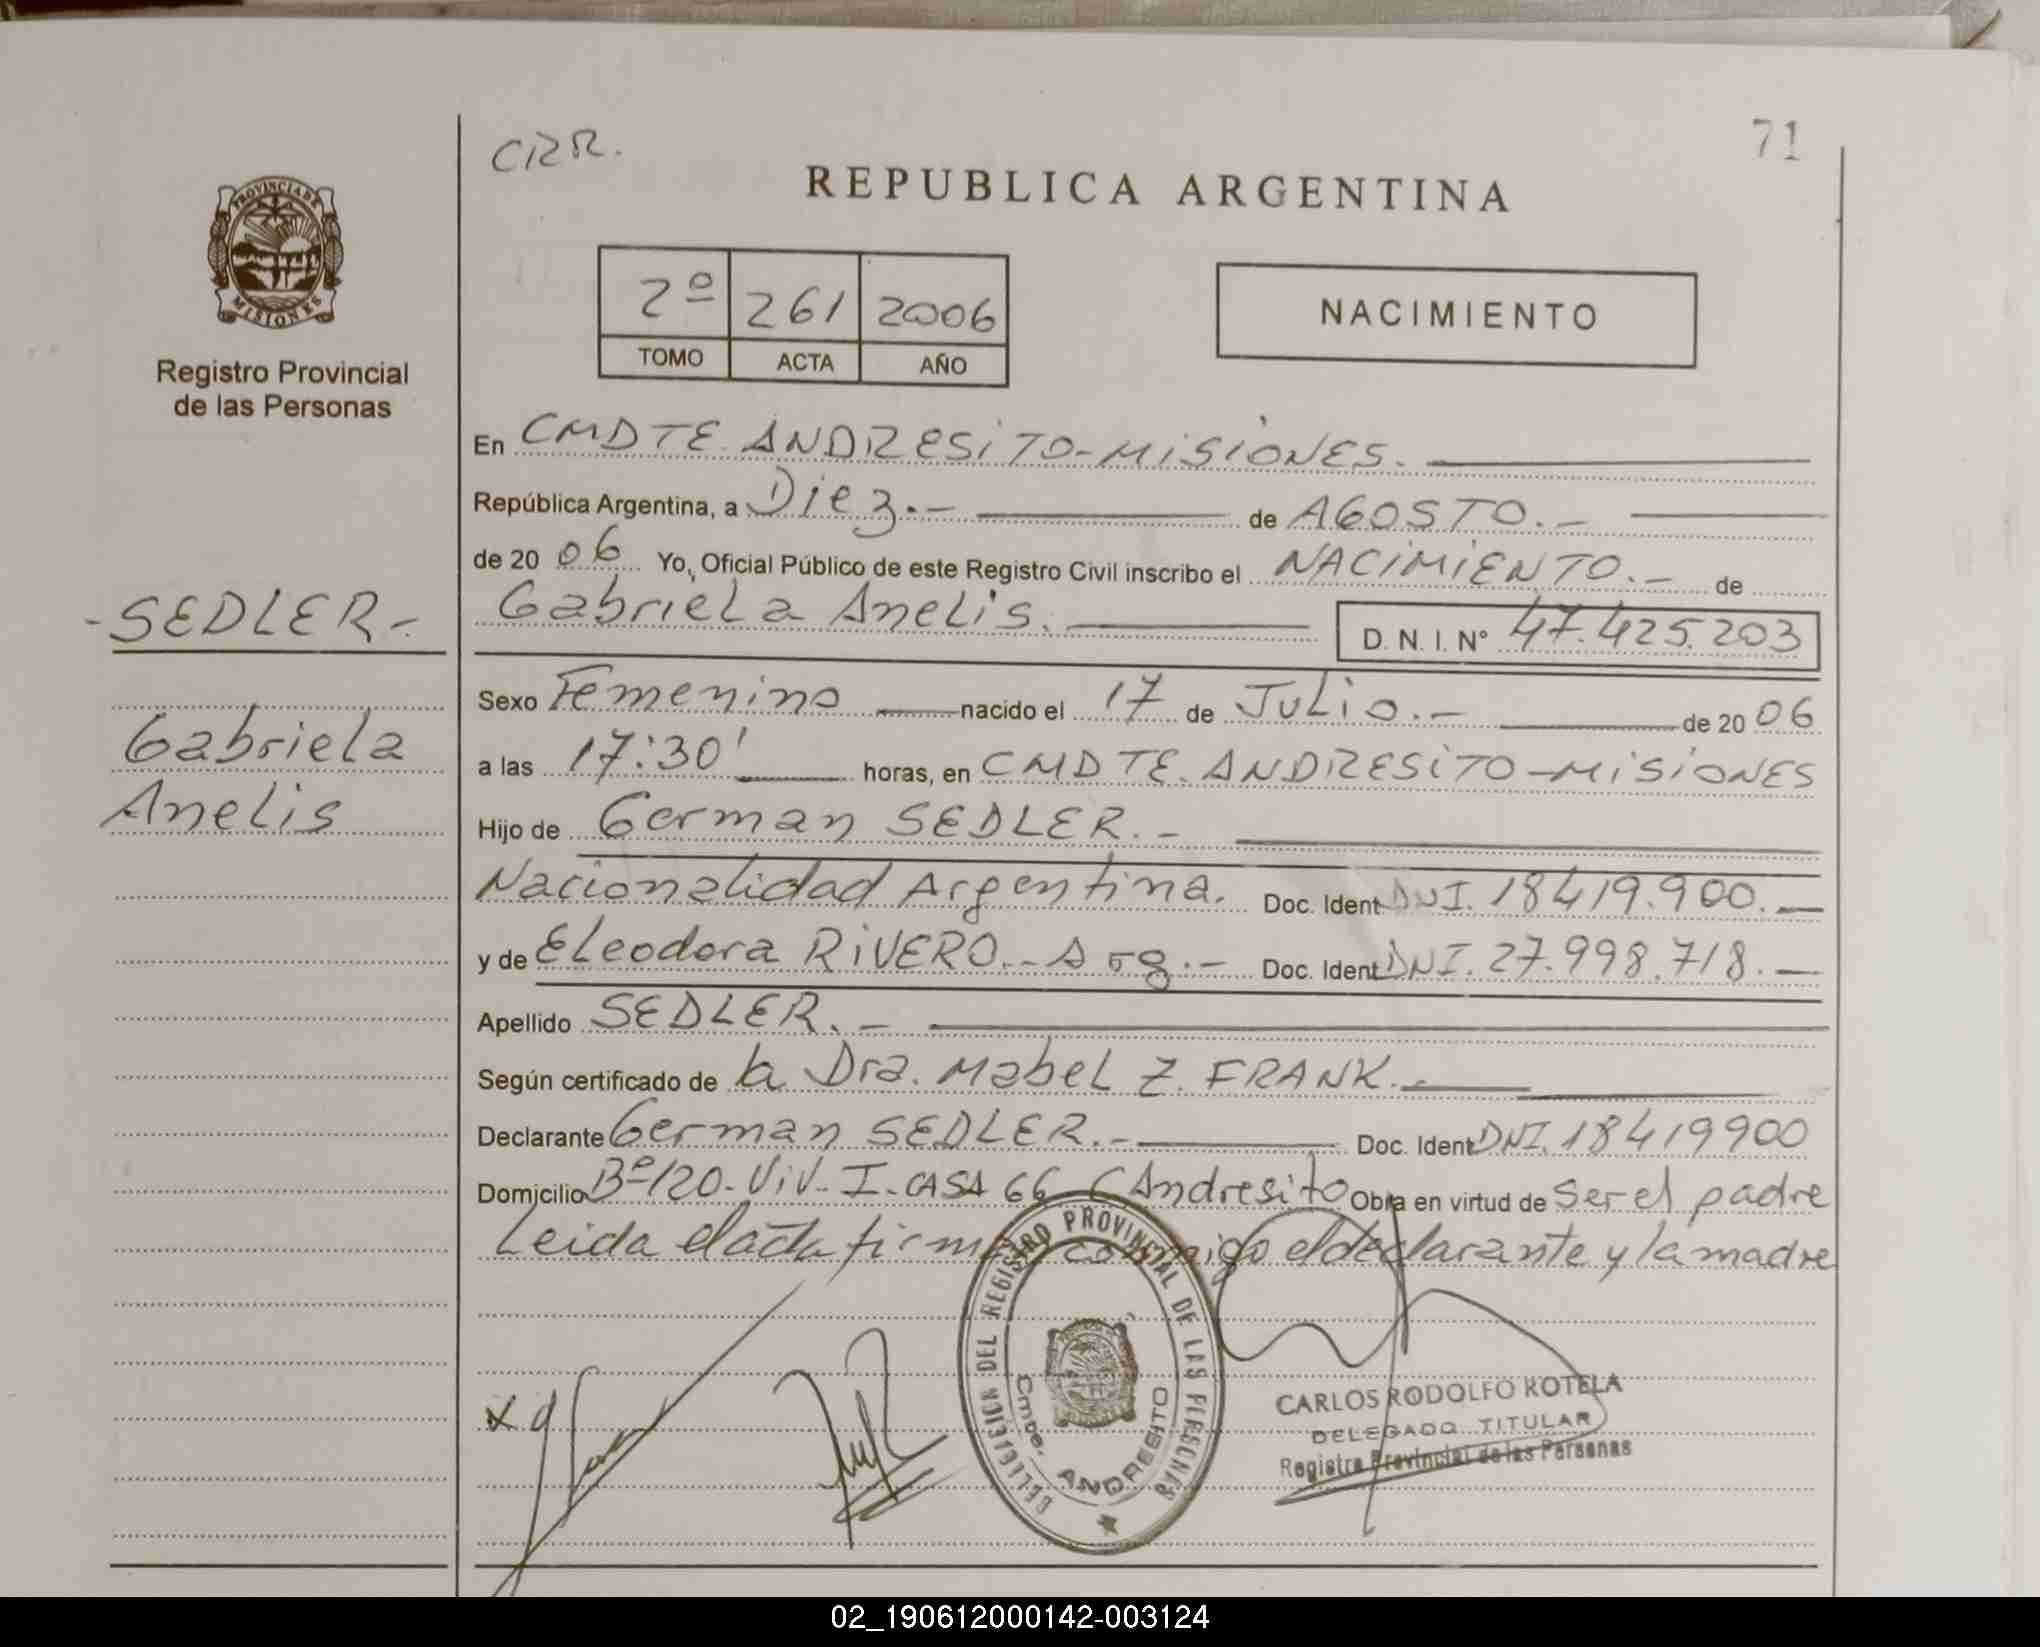 CRR.
71
REPUBLICA ARGENTINA
PROVINCIA DE
MISIONES
Registro Provincial
de las Personas
2º 261 2006
TOMO ACTA AÑO
NACIMIENTO
En CMDTE. ANDRESiTO-MiSiONES.
República Argentina, a Diez.- de AGOSTO.-
de 20 06 Yo, Oficial Público de este Registro Civil inscribo el NACiMiENTO.- de
-SEDLER-
Gabriela Anelis. D. N. I. Nº 47.425.203
Sexo Femenino nacido el 17 de Julio.- de 20 06
Gabriela
a las 17:30' horas, en CMDTE. ANDRESiTO-MiSiONES
Anelis
Hijo de German SEDLER.-
Nacionalidad Argentina. Doc. Ident DNI. 18419.900.-
y de Eleodora RiVERO.- Arg.- Doc. Ident DNI. 27.998.718.-
Apellido SEDLER.-
Según certificado de la Dra. Mabel Z. FRANK.-
Declarante German SEDLER.- Doc. Ident DNI. 18419900
Domicilio Bº120-ViV-I-CASA 66 (Andresito Obra en virtud de Ser el padre
Leida el acta firman conmigo el declarante y la madre
DELEGACION DEL REGISTRO PROVINCIAL DE LAS PERSONAS
Cmde. ANDRESITO
CARLOS RODOLFO ROTELA
DELEGADO TITULAR
Registro Provincial de las Personas
02_190612000142-003124